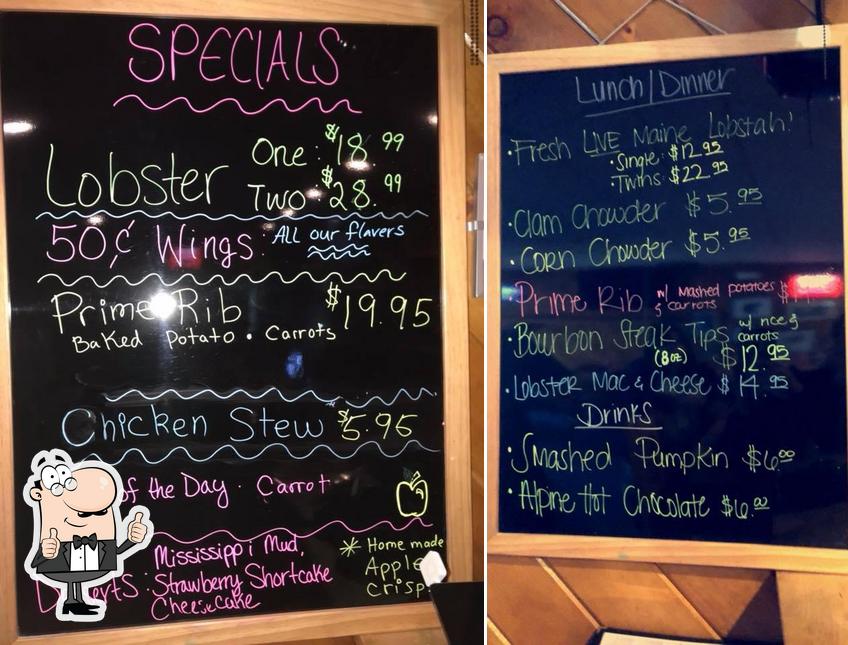 SPECIALS
Lobster One: $18.99
Two: $28.99
50¢ Wings: All our flavers
Prime Rib $19.95
Baked Potato • Carrots
Chicken Stew $5.95
of the Day • Carrot
Mississippi Mud,
Strawberry Shortcake
Cheesecake
* Home made
Apple
Crisp
Lunch/Dinner
• Fresh LIVE Maine Lobstah!
• Single: $12.95
• Twins: $22.95
• Clam Chowder $5.95
• Corn Chowder $5.95
• Prime Rib w/ Mashed potatoes
& carrots
• Bourbon Steak Tips w/ rice &
carrots
(8oz) $12.95
• Lobster Mac & Cheese $14.95
Drinks
• Smashed Pumpkin $6.00
• Alpine Hot Chocolate $6.00